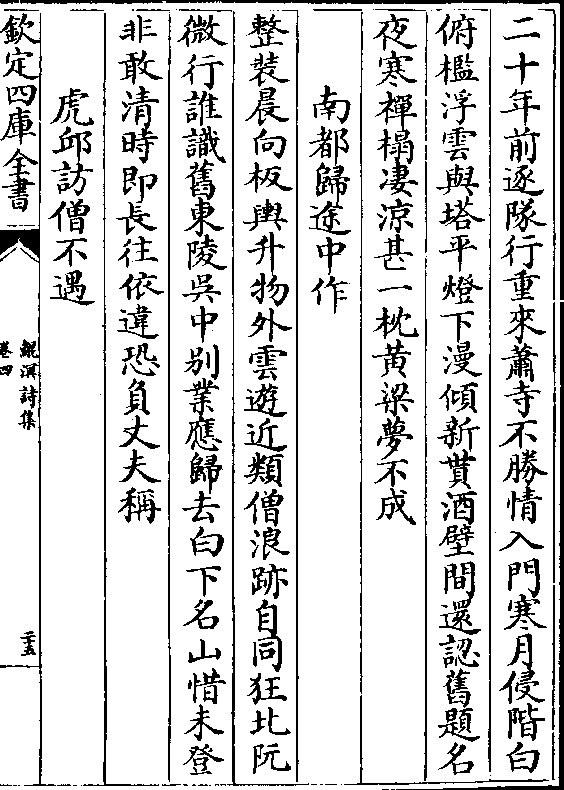 二十年前逐隊行重來蕭寺不勝情入門寒月侵階白
俯檻浮雲與塔平燈下漫傾新貰酒壁間還認舊題名
夜寒禪榻凄涼甚一枕黃粱夢不成
南都歸途中作
整裝晨向板輿升物外雲遊近類僧浪跡自同狂北阮
微行誰識舊東陵吳中别業應歸去白下名山惜未登
非敢清時即長往依違恐負丈夫稱
虎邱訪僧不遇
欽定四庫全書
鯤溟詩集
卷四
二十五